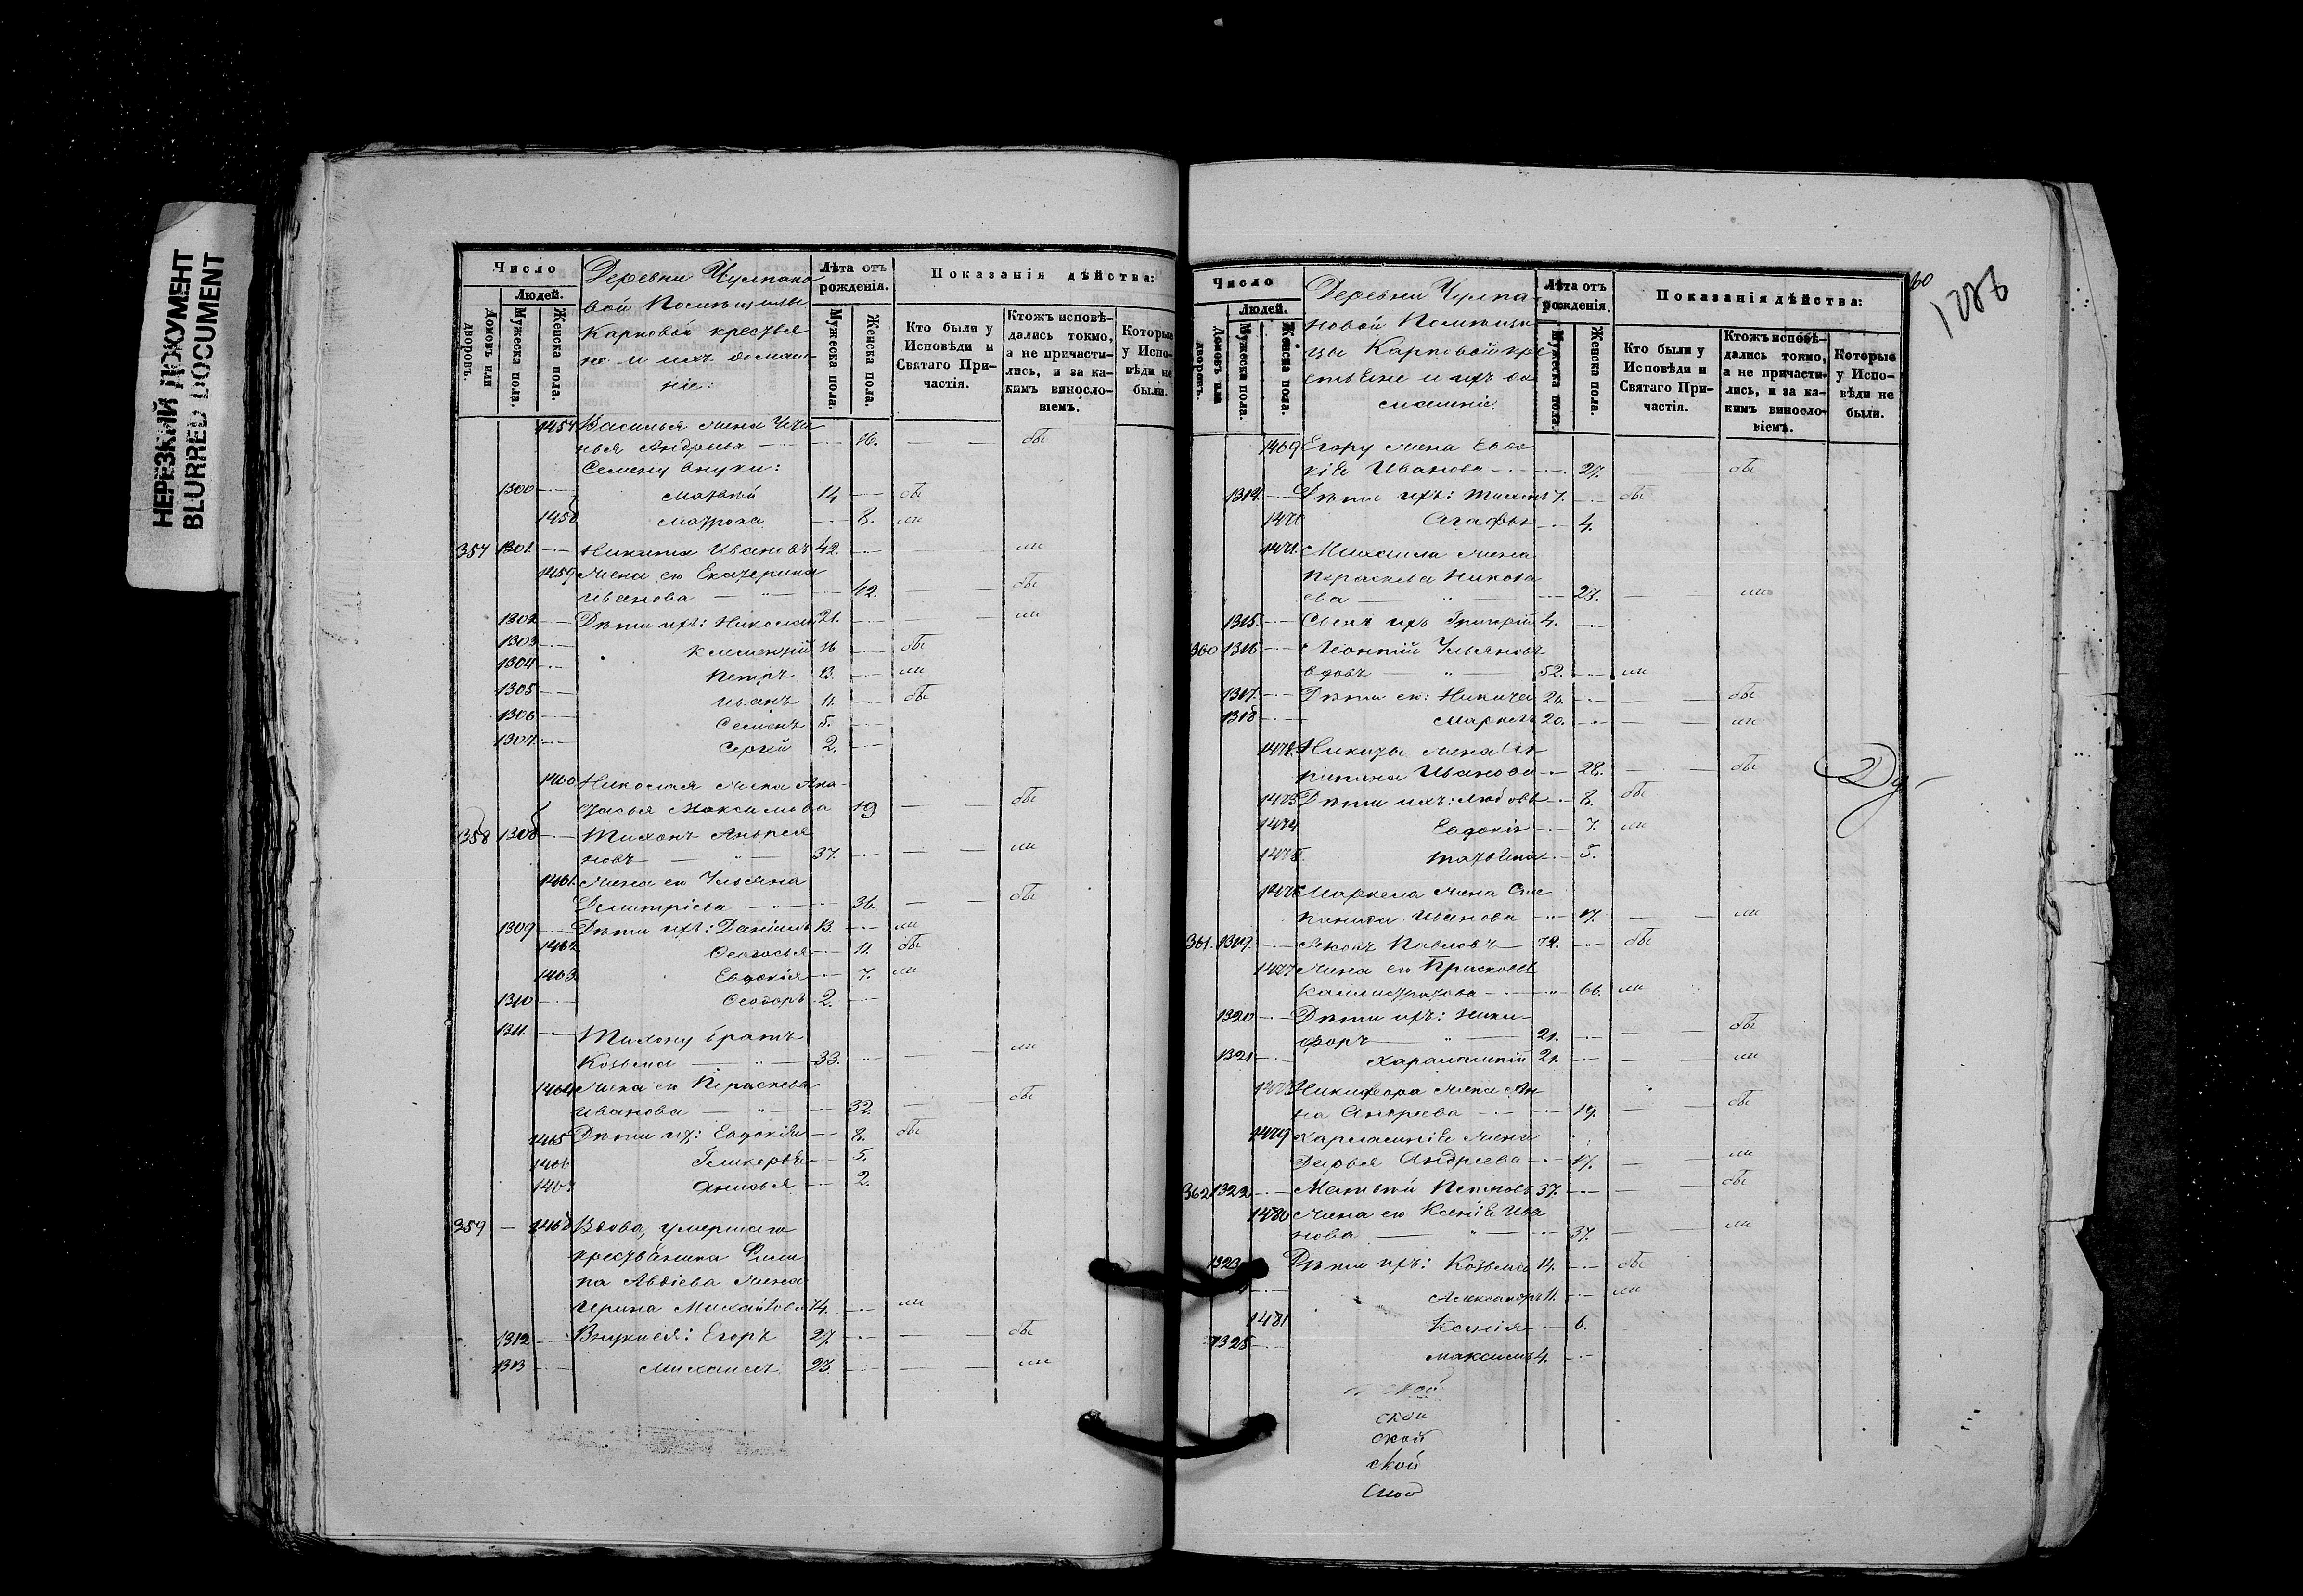 НЕРЕЗКИЙ ДОКУМЕНТ
BLURRED DOCUMENT
Число
Людей.
Домовъ или дворовъ.
Мужеска пола.
Женска пола.
Деревни Чулпано
вой Помѣщицы
Карповой крестья
не и ихъ домаш
ніе:
Лѣта отъ рожденія.
Мужеска пола.
Женска пола.
Показанія дѣйства:
Кто были у Исповѣди и Святаго Причастія.
Ктожъ исповѣдались токмо, а не причастились, и за какимъ винословіемъ.
Которые у Исповѣди не были.
1457 Василья жена
Андреева 16. оба
Семену внуки:
1300 Матвѣй 14 оба
1458 Матрона 8. ли
357 1301. Никита Ивановъ 42. ли
1459 Жена его Екатерина
Иванова 42. оба
1302 Дѣти ихъ: Николай 21. ли
1303 Климентій 16 оба
1304 Петръ 13. ли
1305 Иванъ 11. оба
1306 Семенъ 5.
1307 Сергій 2.
1460 Николая жена Ана
стасья Максимова 19 оба
358 1308 Тихонъ Андрея
новъ 37. ли
1461. Жена его Ульяна
Димитріева 36. оба
1309 Дѣти ихъ: Даніилъ 13. ли
1462 Ѳеодосья 11. оба
1463 Евдокія 7. ли
1310 Ѳеодоръ 2.
1311. Тихону братъ
Козьма 33. ли
1464 Жена его Параскева
Иванова 32. оба
1465 Дѣти их: Евдокія 8. оба
1466 Гликерія 5.
1467 Анисья 2.
359 1468 Вдова, умершаго
крестьянина Фили
па Авдіева жена
Ирина Михайлова 74. ли
1312 Внуки ея: Егоръ 27. оба
1313 Михаилъ 23. ли
60
1286
Число
Людей.
Домовъ или дворовъ.
Мужеска пола.
Женска пола.
Деревни Чулпа
новой Помѣщи
цы Карповой кре
стьяне и ихъ до
машніе.
Лѣта отъ рожденія.
Мужеска пола.
Женска пола.
Показанія дѣйства:
Кто были у Исповѣди и Святаго Причастія.
Ктожъ исповѣдались токмо, а не причастились, и за какимъ винословіемъ.
Которые у Исповѣди не были.
1469 Егору жена Евдо
кія Иванова 27. оба
1314. Дѣти ихъ: Тихонъ 7. оба
1470 Агафья 4.
1471. Михаила жена
Параскева Никола
ева 23. ли
1315. Сынъ ихъ Григорій 4.
360 1316 Леонтій Ульяновъ
вдовъ 52. ли
1317. Дѣти его: Никита 26. оба
1318 Маркелъ 20. ли
1472 Никиты жена Аг
рипина Иванова 28. оба
1473 Дѣти ихъ: Любовь 8. оба
1474 Евдокія 7. ли
1475. Татьяна 5.
1476 Маркела жена Сте
панида Иванова 17. ли
361. 1319. Яковъ Павловъ 72. оба
1477 Жена его Прасковья
Каллистратова 66. ли
1320 Дѣти ихъ: Ники
форъ 21. оба
1321 Харлампій 21. ли
1478 Никифора жена Ан
на Андреева 19. оба
1479 Харлампія жена
Дарья Андреева 17. ли
362 1322 Матвѣй Петровъ 37. оба
1480 Жена его Ксенія Ива
нова 37. ли
1323 Дѣти ихъ: Козьма 14. оба
Александръ 11. ли
1481 Ксенія 6.
1325 Максимъ 4.
ской
ской
ской
ской